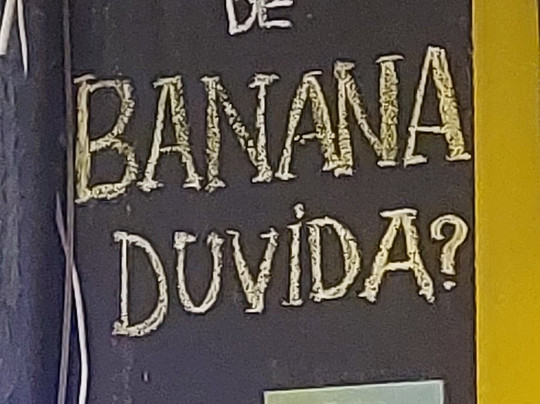 DE
BANANA
DUViDA?